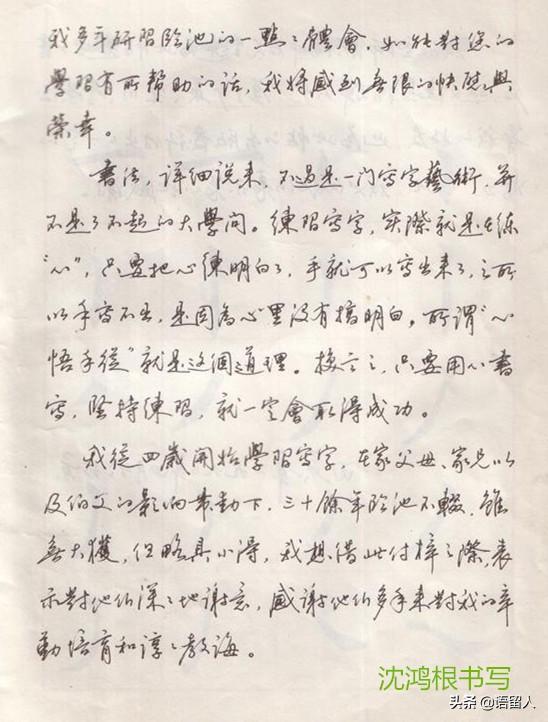 我多年研習临池的一點點體會，如能對您的
學習有所帮助的话，我将感到無限的快慰與
榮幸。
書法，详细说来，不過是一门寫字藝術，并
不是了不起的大學问。練習寫字，实際就是在练
“心”，只要把心練明白了，手就可以寫出来了，之所
以手寫不出，是因為心里没有搞明白，所谓“心
悟手從”就是这個道理。换言之，只要用心書
寫，堅持練習，就一定會取得成功。
我從四歲開始學習寫字，在家父母、家兄以
及伯父的影响带動下，三十餘年临池不輟，雖
無大獲，但略具小得，我想借此付梓之際，表
示對他们深深地谢意，感谢他们多年来對我的辛
勤培育和諄諄教诲。
沈鸿根书写
头条 @语留人